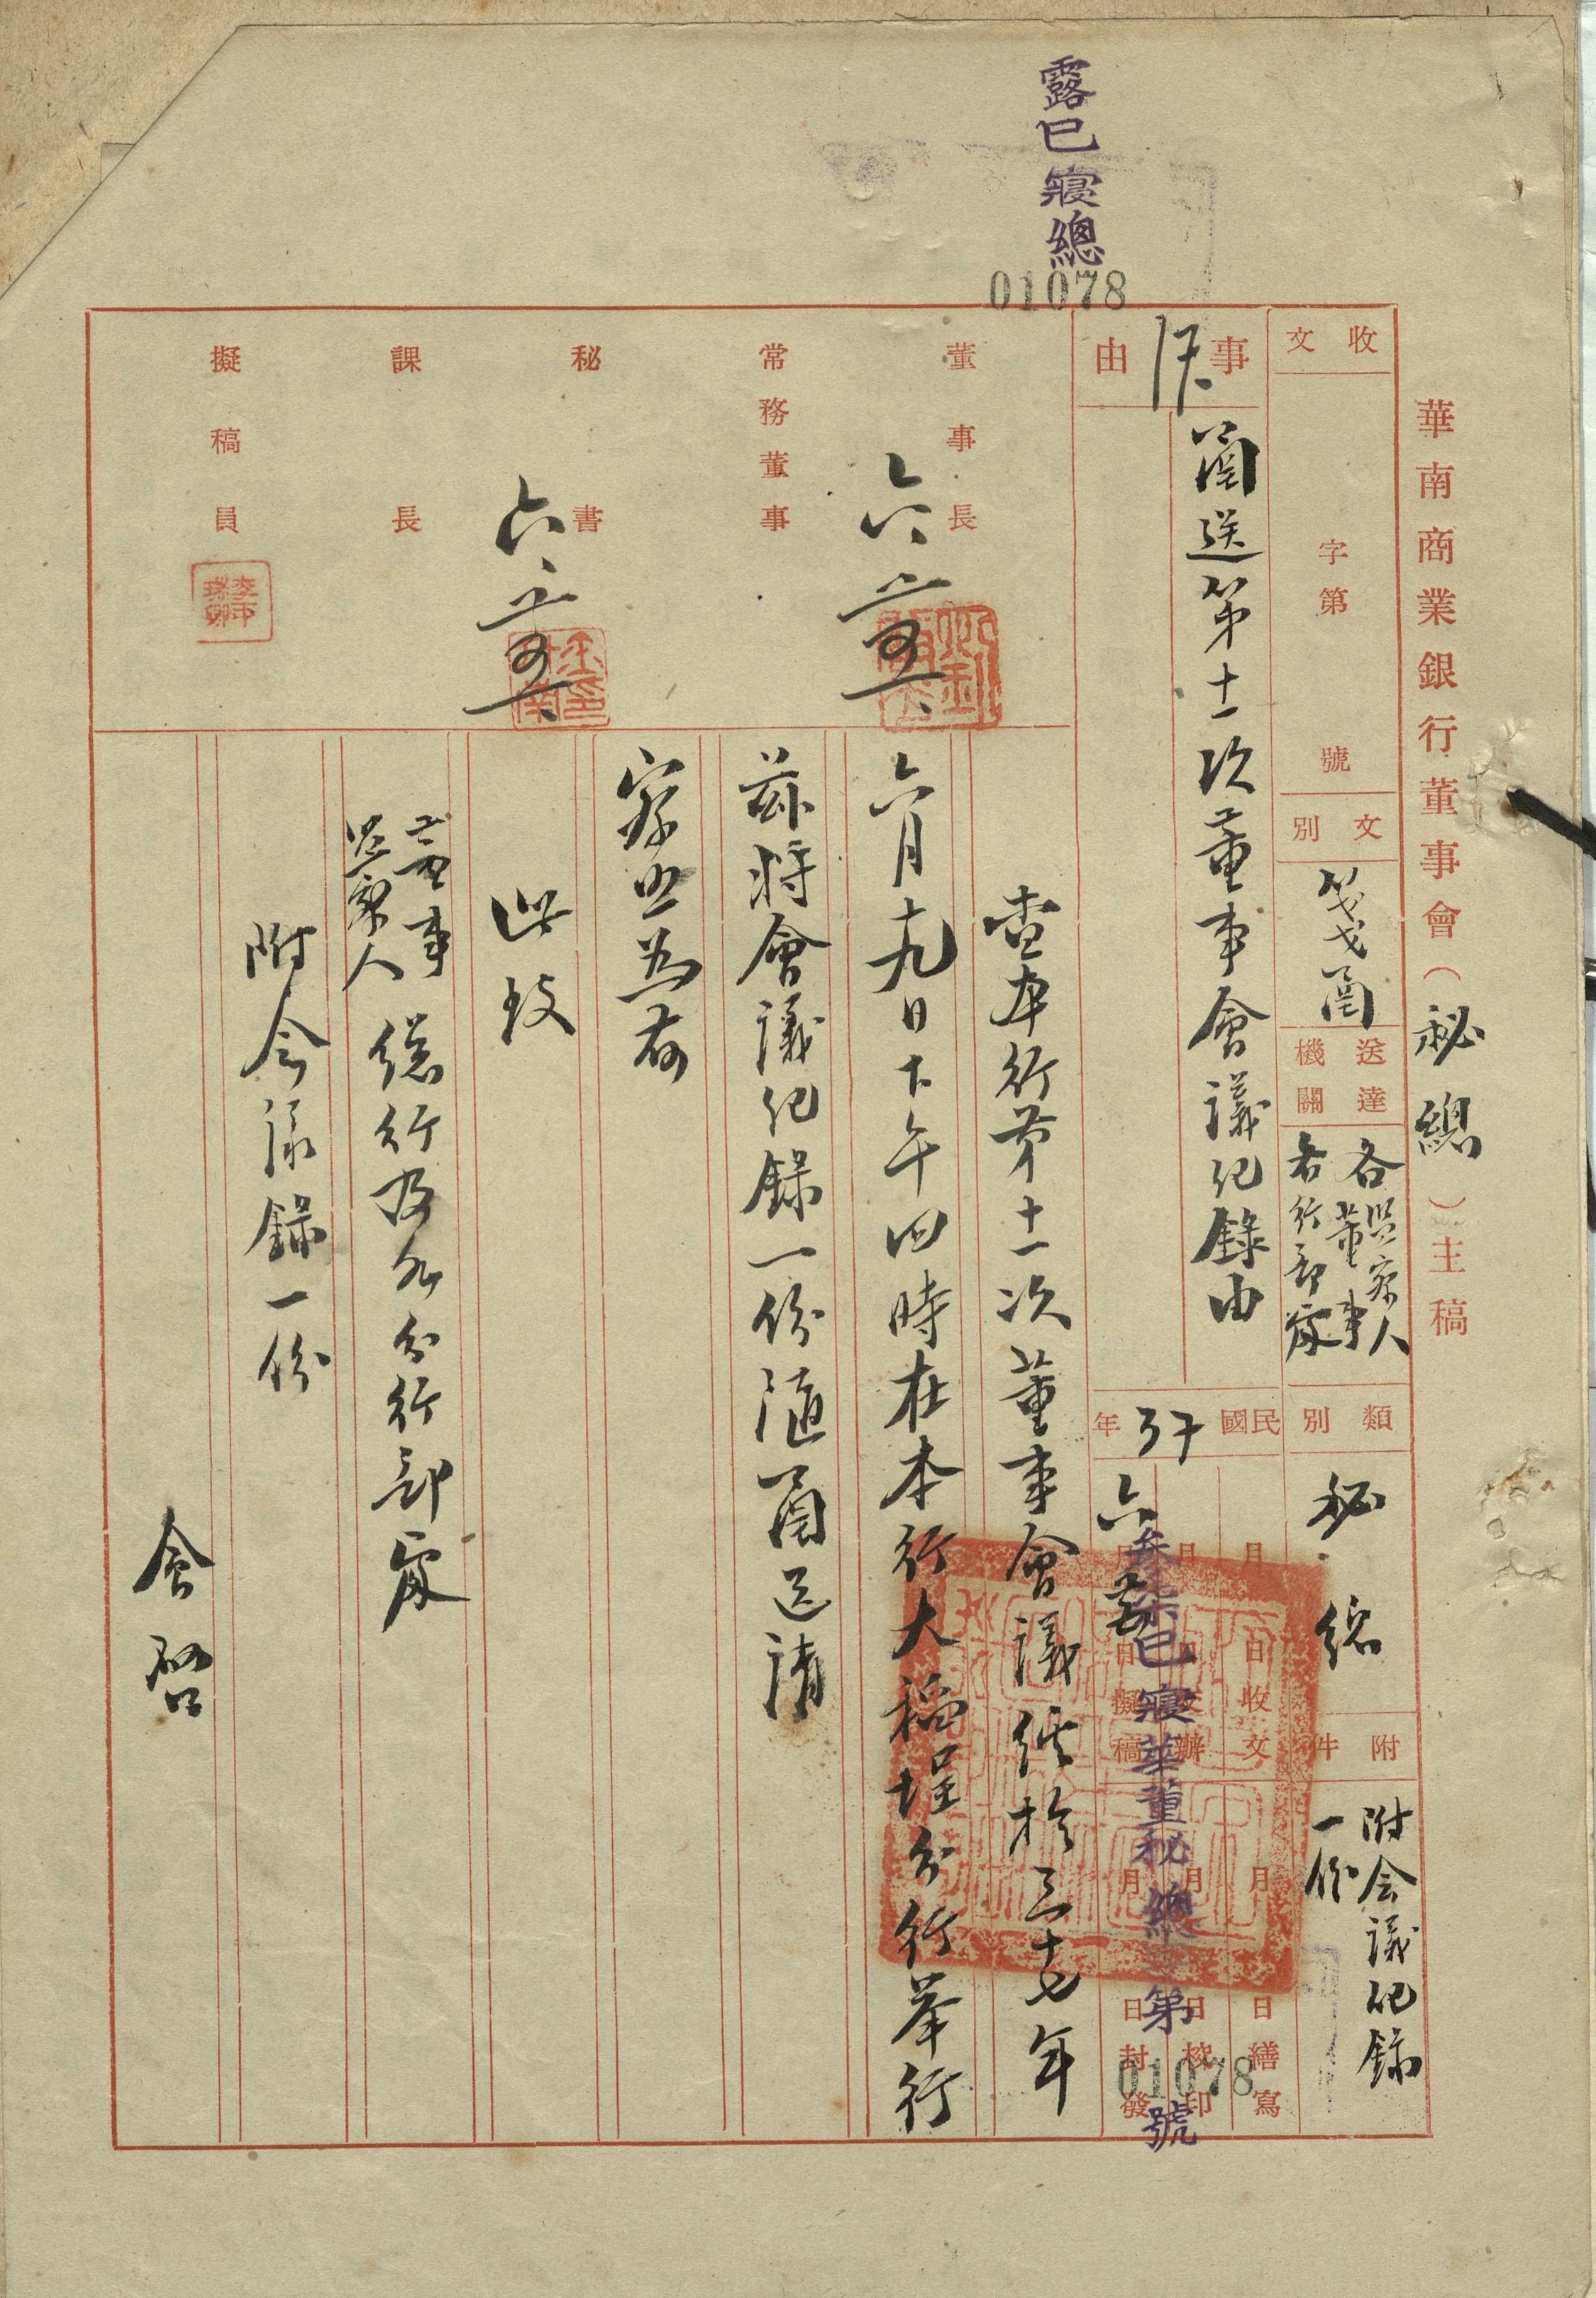 露巳寢總
01078
華南商業銀行董事會（秘總）主稿
收文
字第
號
文別
箋函
送達機關
各董事
監察人
各行部處
類別
秘總
附件
附会議紀錄
一份
事由
函送第十一次董事會議紀錄由
民國37年
月 日收文
月 日交辦
月 日擬稿
月 日繕寫
月 日校印
月 日封發
叁柒巳寢華董秘總字第
01078
號
董事長
常務董事
秘書
課長
擬稿員
查本行第十一次董事會議經於三十七年
六月十九日下午四時在本行大稻埕分行舉行
茲將會議紀錄一份隨函送請
察照為荷
此致
董事
監察人
總行及各分行部處
附会議錄一份
會啓